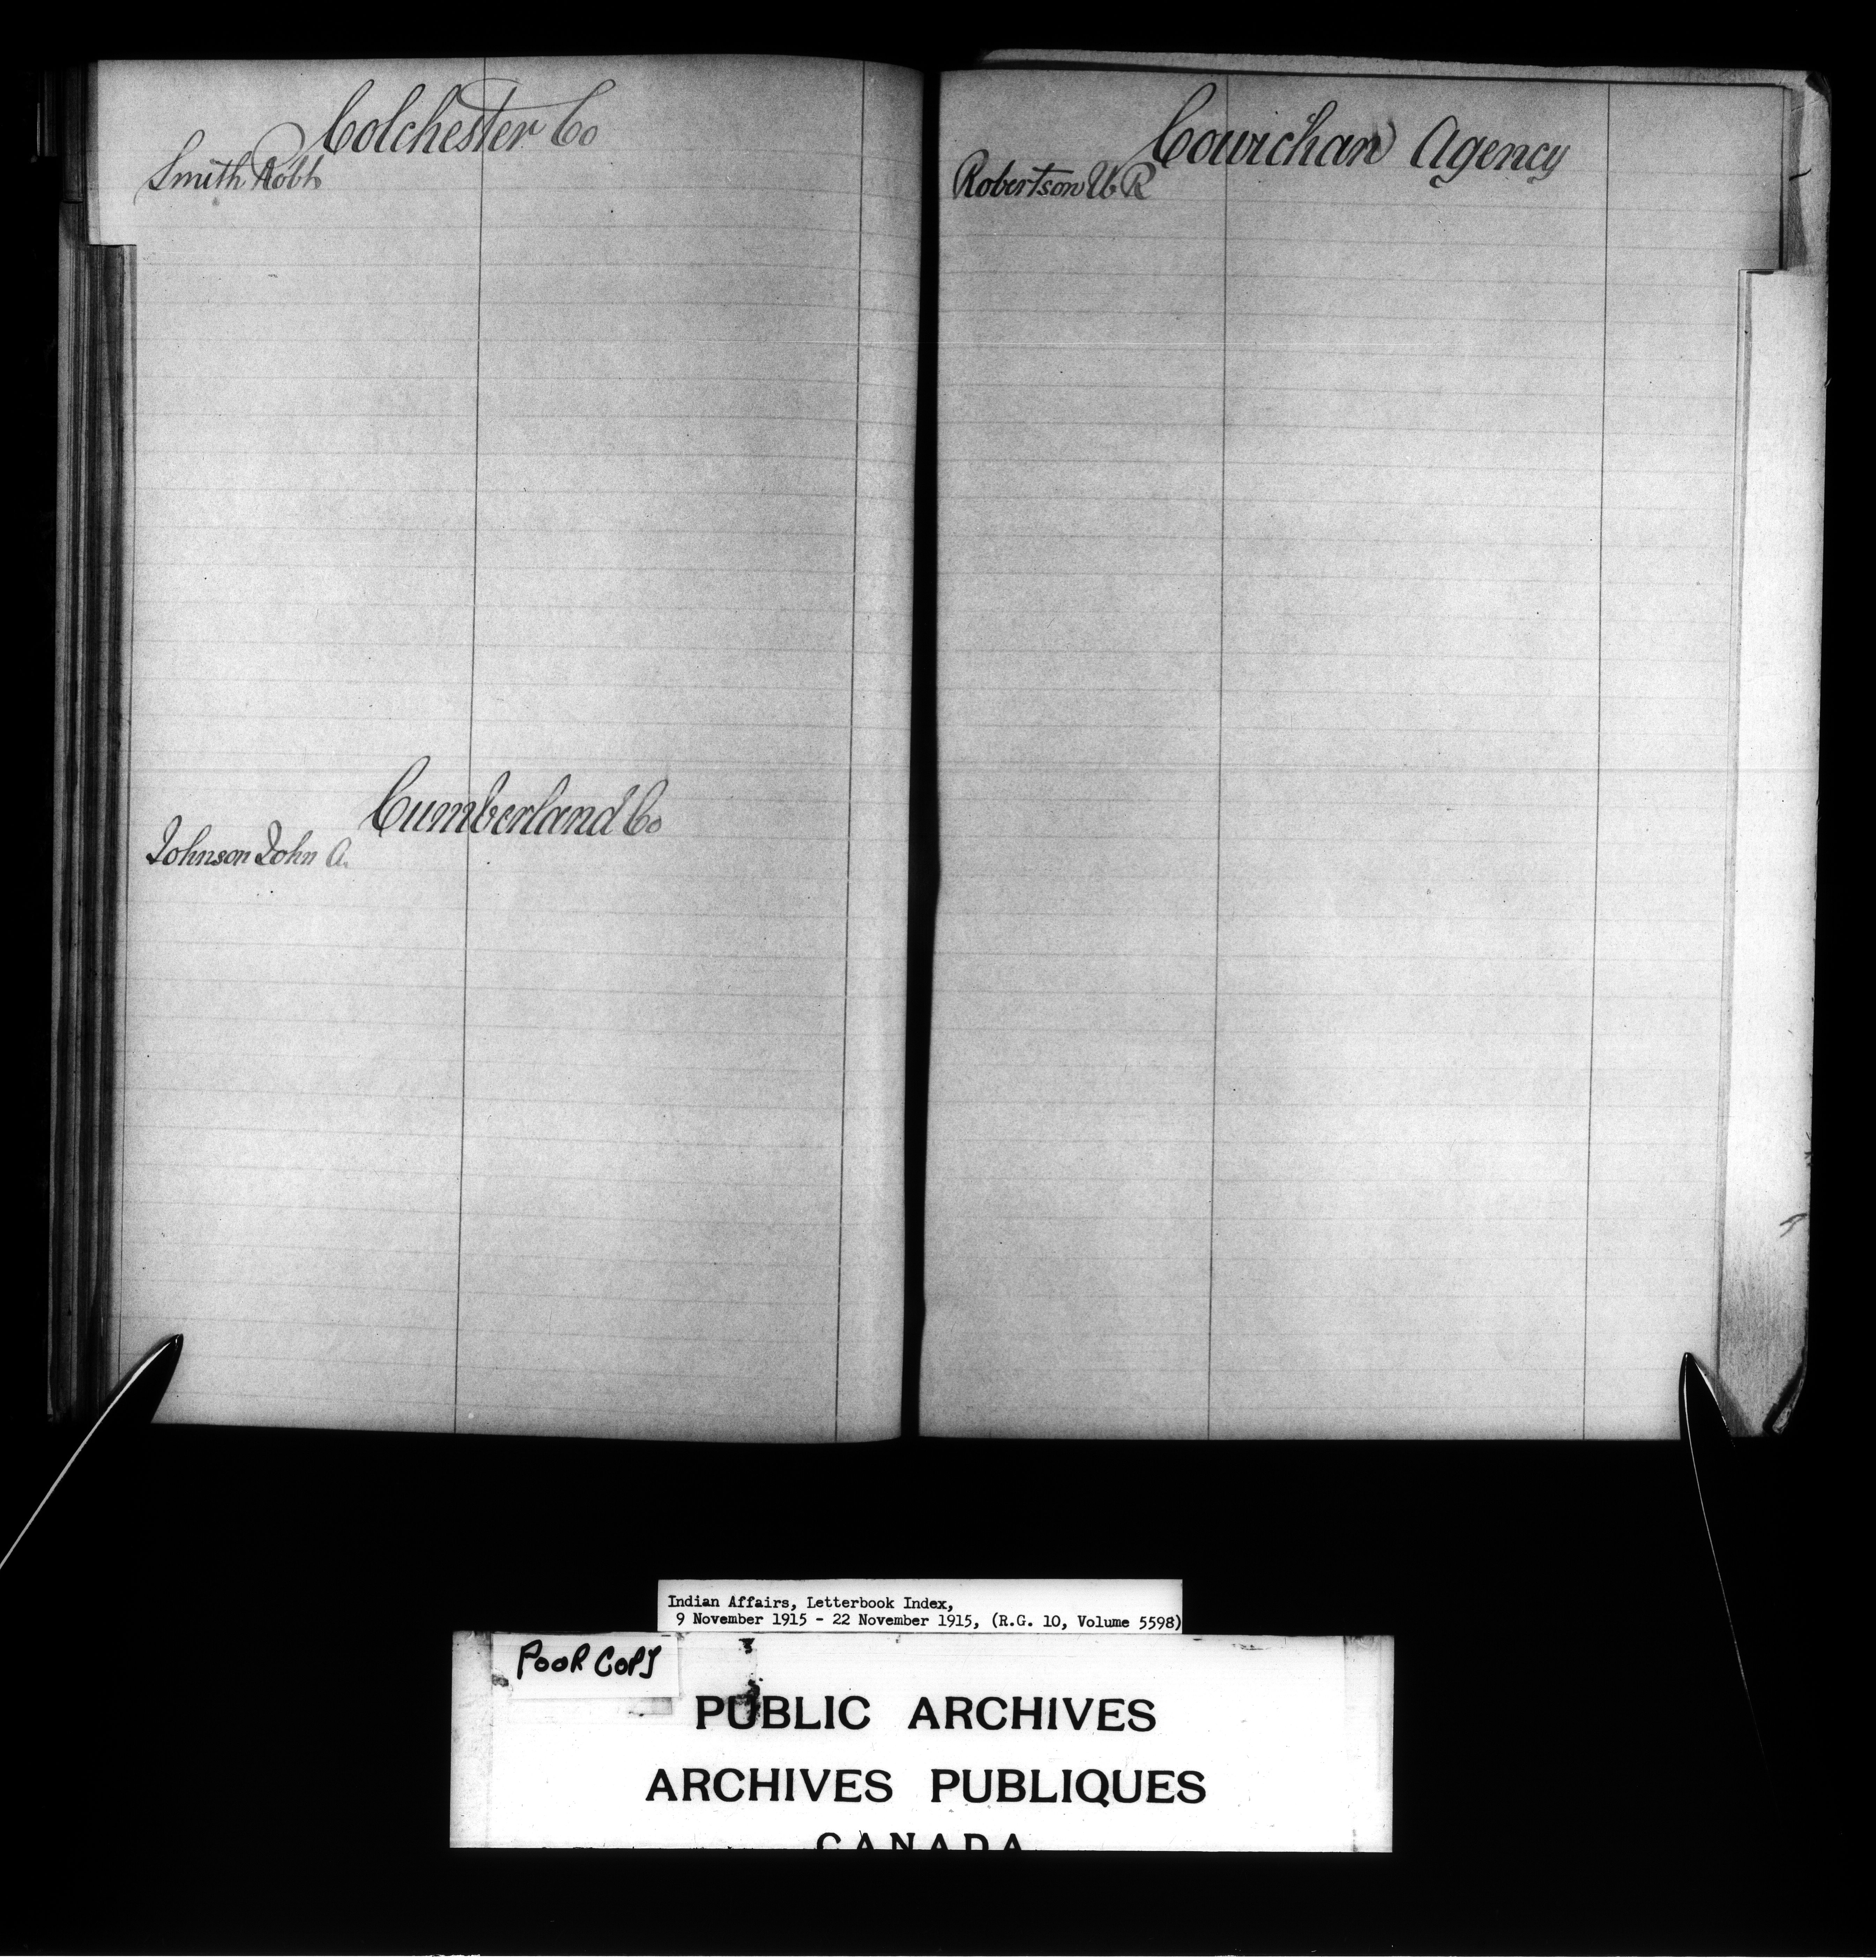 Colchester Co
Smith Robt
Cumberland Co
Johnson John A.
Cowichan Agency
Robertson W. R
Indian Affairs, Letterbook Index,
9 November 1915 - 22 November 1915, (R.G. 10, Volume 5598)
POOR COPY
PUBLIC ARCHIVES
ARCHIVES PUBLIQUES
CANADA